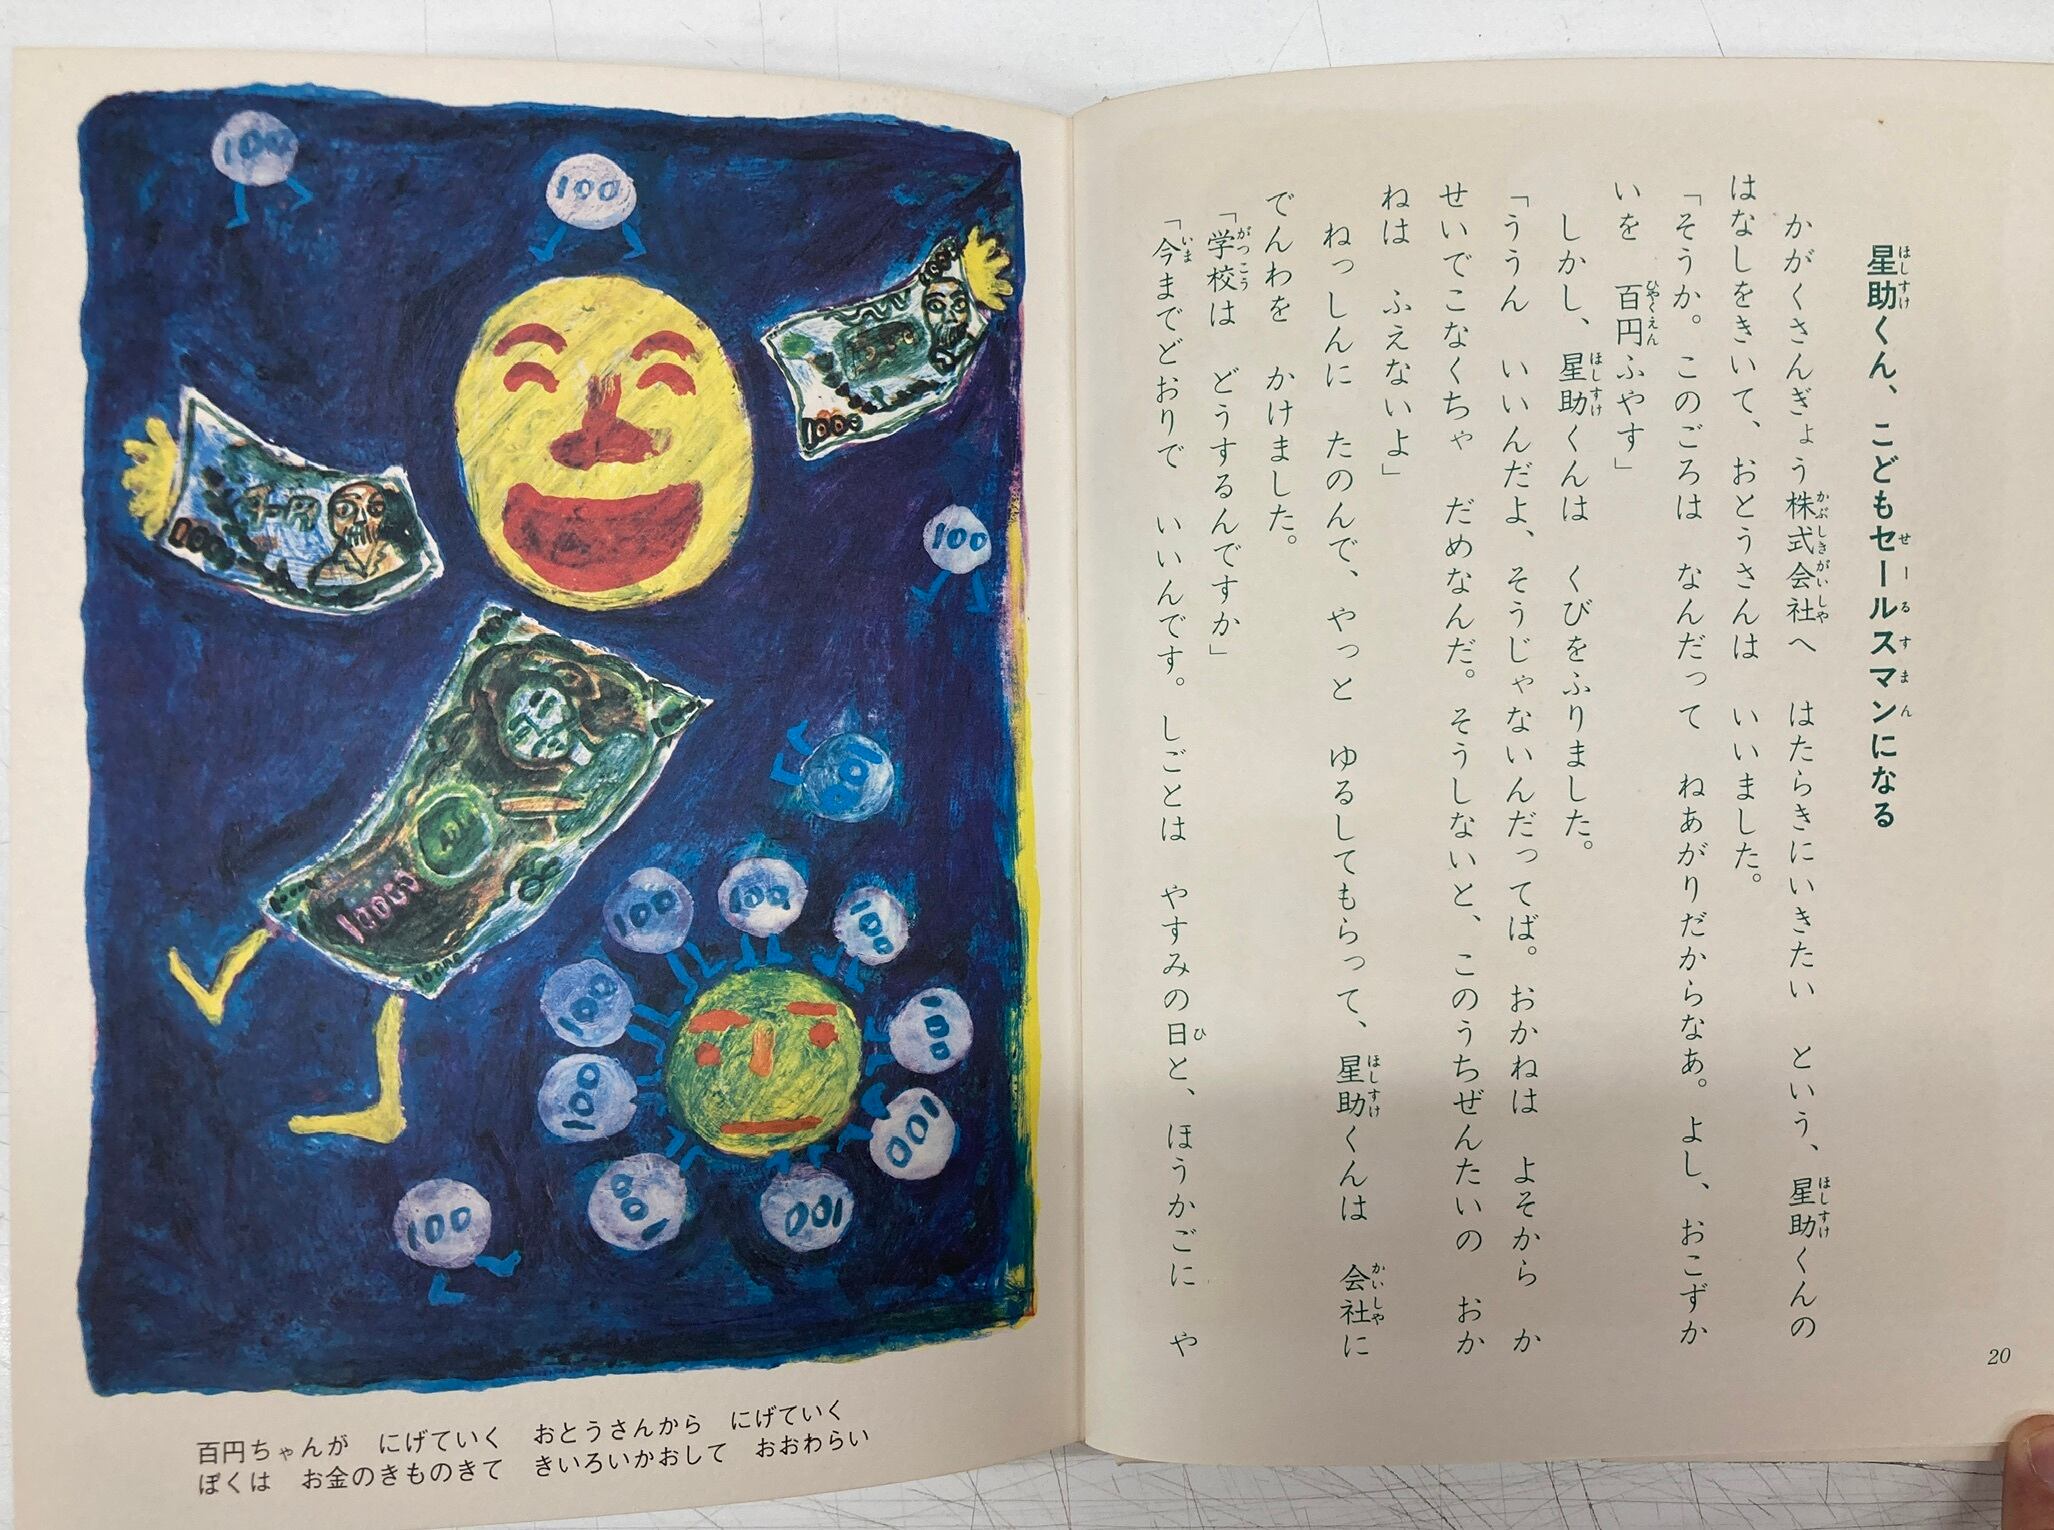 星助くん、こどもセールスマンになる
かがくさんぎょう株式会社へ　はたらきにいきたい　という、星助くんの
はなしをきいて、おとうさんは　いいました。
「そうか。このごろは　なんだって　ねあがりだからなあ。よし、おこずか
いを　百円ふやす」
しかし、星助くんは　くびをふりました。
「ううん　いいんだよ、そうじゃないんだってば。おかねは　よそから　か
せいでこなくちゃ　だめなんだ。そうしないと、このうちぜんたいの　おか
ねは　ふえないよ」
ねっしんに　たのんで、やっと　ゆるしてもらって、星助くんは　会社に
でんわを　かけました。
「学校は　どうするんですか」
「今までどおりで　いいんです。しごとは　やすみの日と、ほうかごに　や
20
100
100
1000
1000
100
10000
10000
100
100
100
100
100
100
100
100
100
100
100
百円ちゃんが　にげていく　おとうさんから　にげていく
ぼくは　お金のきものきて　きいろいかおして　おおわらい